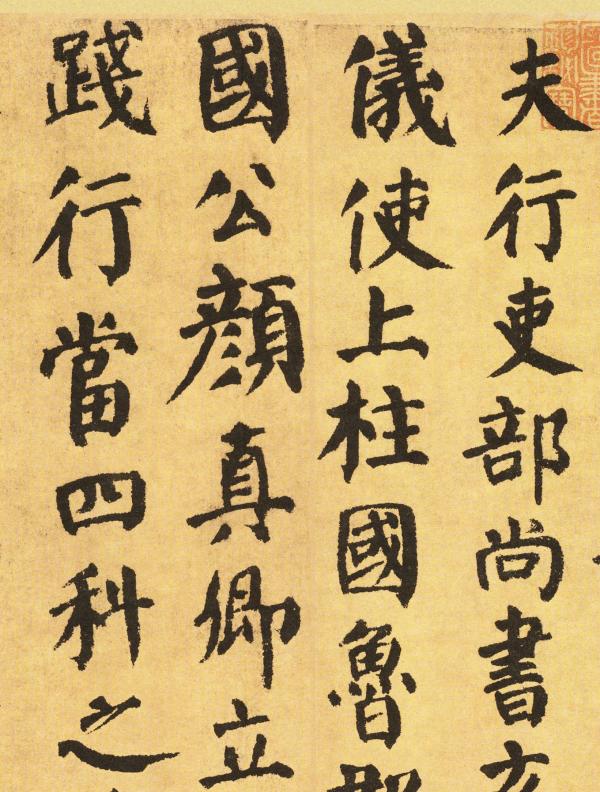 夫行吏部尚書充
儀使上柱國魯郡
國公顔真卿立
踐行當四科之